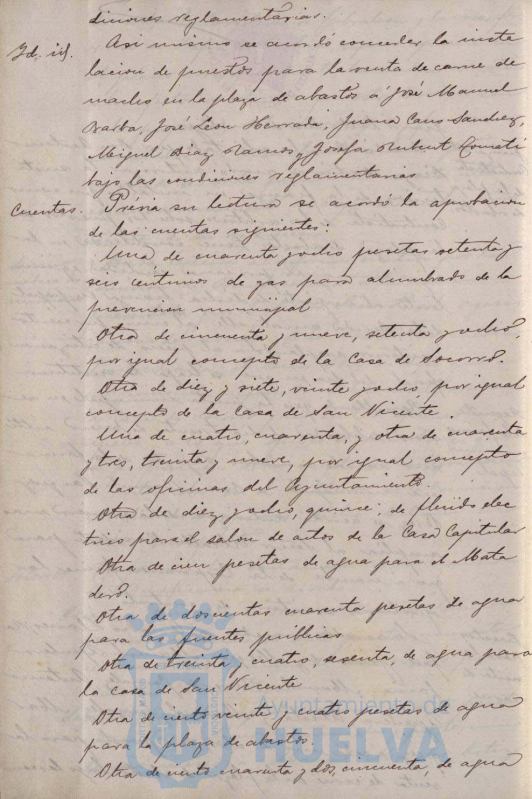 diciones reglamentarias.
Id. id. Asi mismo se acordó conceder la insta
lacion de puestos para la venta de carne de
macho en la plaza de abastos á José Manuel
Barba, José Leon Herrada, Juana Cano Sanchez,
Miguel Diaz Ramos, Josefa Rubert
bajo las condiciones reglamentarias
Cuentas. Prévia su lectura se acordó la aprobacion
de las cuentas siguientes:
Una de cuarenta y ocho pesetas setenta y
seis céntimos de gas para alumbrado de la
prevencion municipal
Otra de cincuenta y nueve, setenta y ocho,
por igual concepto de la Casa de Socorro.
Otra de diez y siete, veinte y ocho, por igual
concepto de la Casa de San Vicente.
Una de cuatro, cuarenta, y otra de cuarenta
y tres, treinta y nueve, por igual concepto
de las oficinas del Ayuntamiento.
Otra de diez y ocho, quince, de flúido elec
trico para el salon de actos de la Casa Capitular
Otra de cien pesetas de agua para el Mata
dero.
Otra de doscientas cuarenta pesetas de agua
para las fuentes públicas
Otra de treinta y cuatro, sesenta, de agua para
la casa de San Vicente
Otra de ciento veinte y cuatro pesetas de agua
para la plaza de abastos.
Otra de ciento cuarenta y dos, cincuenta, de agua
Ayuntamiento de
HUELVA